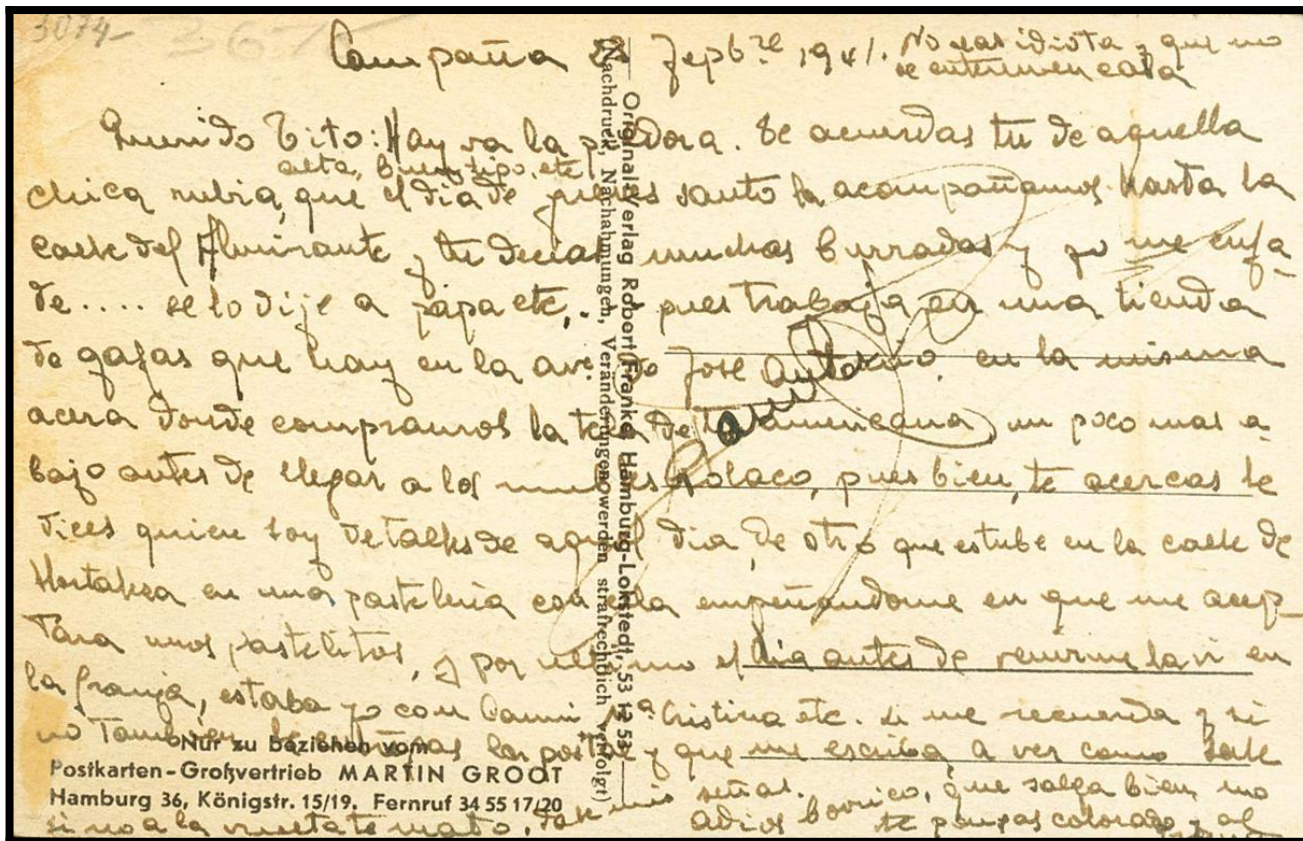 3074-
Campaña 23 Sepbre 1941. No seas idiota y que no
se enteren en casa
Querido Tito: Hay va la p dora. Te acuerdas tu de aquella
alta, buen tipo, etc
chica rubia, que el dia de jueves santo la acompañamos hasta la
calle del Almirante y tu decias muchas burradas y yo me enfa-
de.... se lo dije a papa etc,.. pues trabaja en una tienda
de gafas que hay en la avda de Jose Antonio en la misma
acera donde compramos la tela de la americana, un poco mas a-
bajo antes de llegar a los muebles Rolaco, pues bien, te acercas le
dices quien soy detalles de aquel dia, de otro que estube en la calle de
Hortaleza en una pasteleria con ella empeñandome en que me acep-
tara unos pastelitos, y por ultimo el dia antes de venirme la vi en
la granja, estaba yo con Mª Cristina etc. si me recuerda y si
no tambien le entregas la postal y que me escriba a ver como sale
mis señas.
Adios borrico, que salga bien no
si no a la vuelta te mato, te pongas colorado y al
Original-Verlag Robert Franke, Hamburg-Lokstedt, 53 12 53
(Nachdruck, Nachahmungen, Veränderungen werden strafrechtlich verfolgt)
Nur zu beziehen vom
Postkarten-Großvertrieb MARTIN GROOT
Hamburg 36, Königstr. 15/19. Fernruf 34 55 17/20